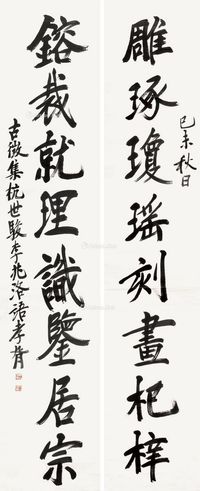 雕琢瓊瑶刻畫杞梓
己未秋日
鎔裁就理識鑒居宗
古微集杭世駿李兆洛語孝胥